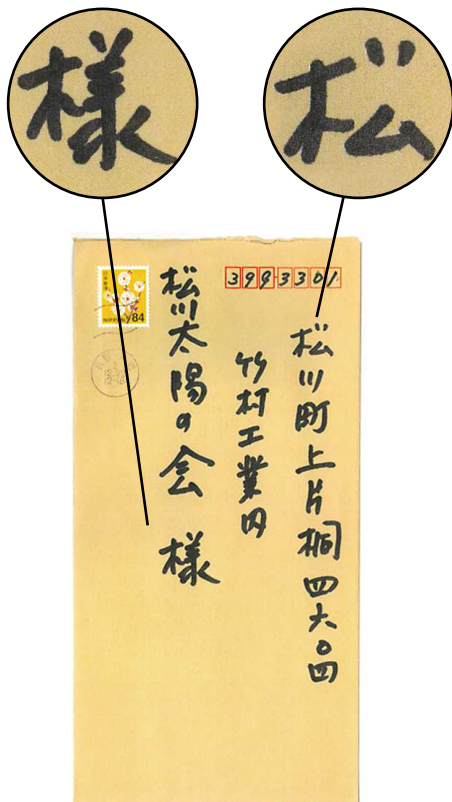 様
松
3993301
松川町上片桐四六〇四
竹村工業内
松川太陽の会 様
84